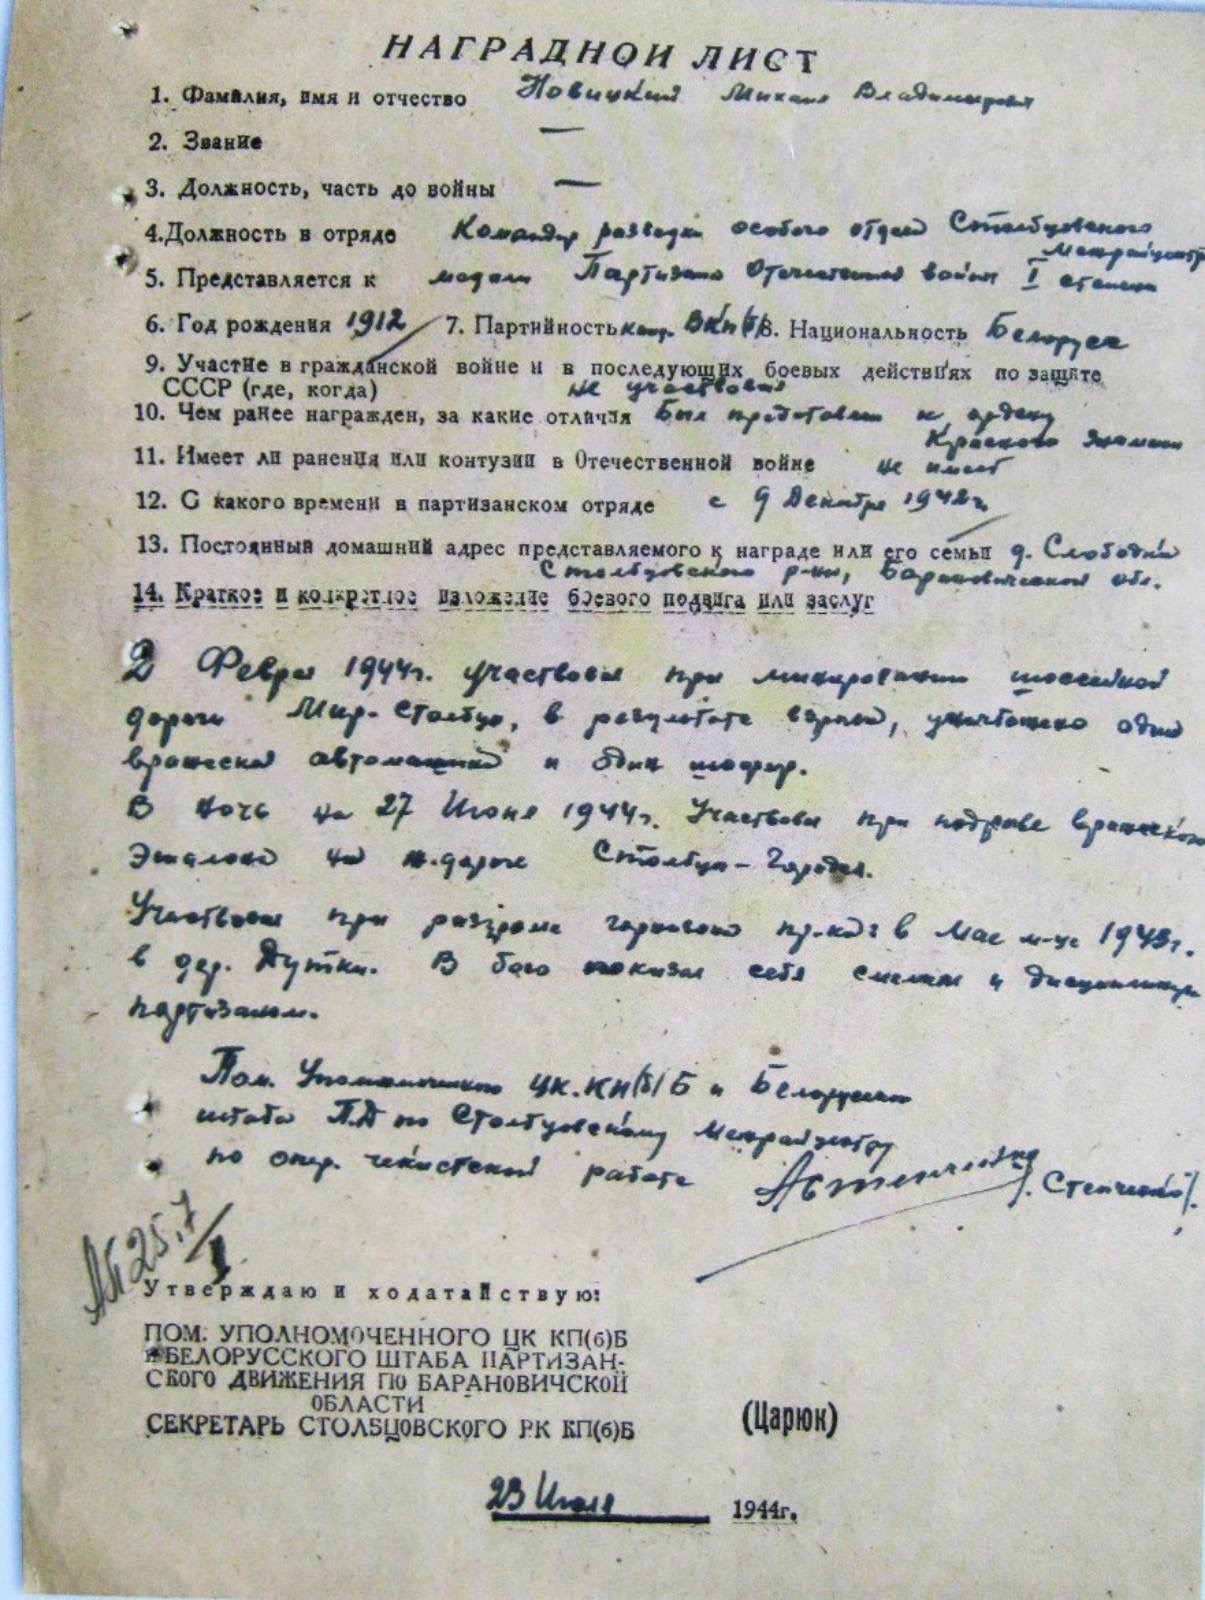 НАГРАДНОЙ ЛИСТ
1. Фамилия, имя и отчество Новицкий Михаил Владимирович
2. Звание —
3. Должность, часть до войны —
4. Должность в отряде Командир разведки особого отдела Столбцовского
Межрайцентра
5. Представляется к медали Партизану Отечественной войны I степени
6. Год рождения 1912 7. Партийность канд. ВКП(б) 8. Национальность Белорус
9. Участие в гражданской войне и в последующих боевых действиях по защите
СССР (где, когда) не участвовал
10. Чем ранее награжден, за какие отличия Был представлен к ордену
Красного Знамени
11. Имеет ли ранения или контузии в Отечественной войне не имеет
12. С какого времени в партизанском отряде с 9 Декабря 1942г.
13. Постоянный домашний адрес представляемого к награде или его семьи д. Слободка
Столбцовского р-на, Барановичской обл.
14. Краткое и конкретное изложение боевого подвига или заслуг
2 Февраля 1944г. участвовал при минировании шоссейной
дороги Мир-Столбцы, в результате взрыва, уничтожена одна
вражеская автомашина и один шофер.
В ночь на 27 Июня 1944г. Участвовал при подрыве вражеского
Эшелона на ж.дороге Столбцы - Городея.
Участвовал при разгроме гарнизона пр-ка в Мае м-це 1943г.
в дер. Дутки. В бою показал себя смелым и дисциплинир
партизаном.
Пом. Уполномоченного ЦК.КП(б)Б и Белорусского
штаба П.Д по Столбцовскому Межрайцентру
по опер. чекистской работе /Степченко/.
25.7
Утверждаю и ходатайствую:
ПОМ. УПОЛНОМОЧЕННОГО ЦК КП(б)Б
И БЕЛОРУССКОГО ШТАБА ПАРТИЗАН-
СКОГО ДВИЖЕНИЯ ПО БАРАНОВИЧСКОЙ
ОБЛАСТИ
СЕКРЕТАРЬ СТОЛБЦОВСКОГО РК КП(б)Б
(Царюк)
23 Июля 1944г.